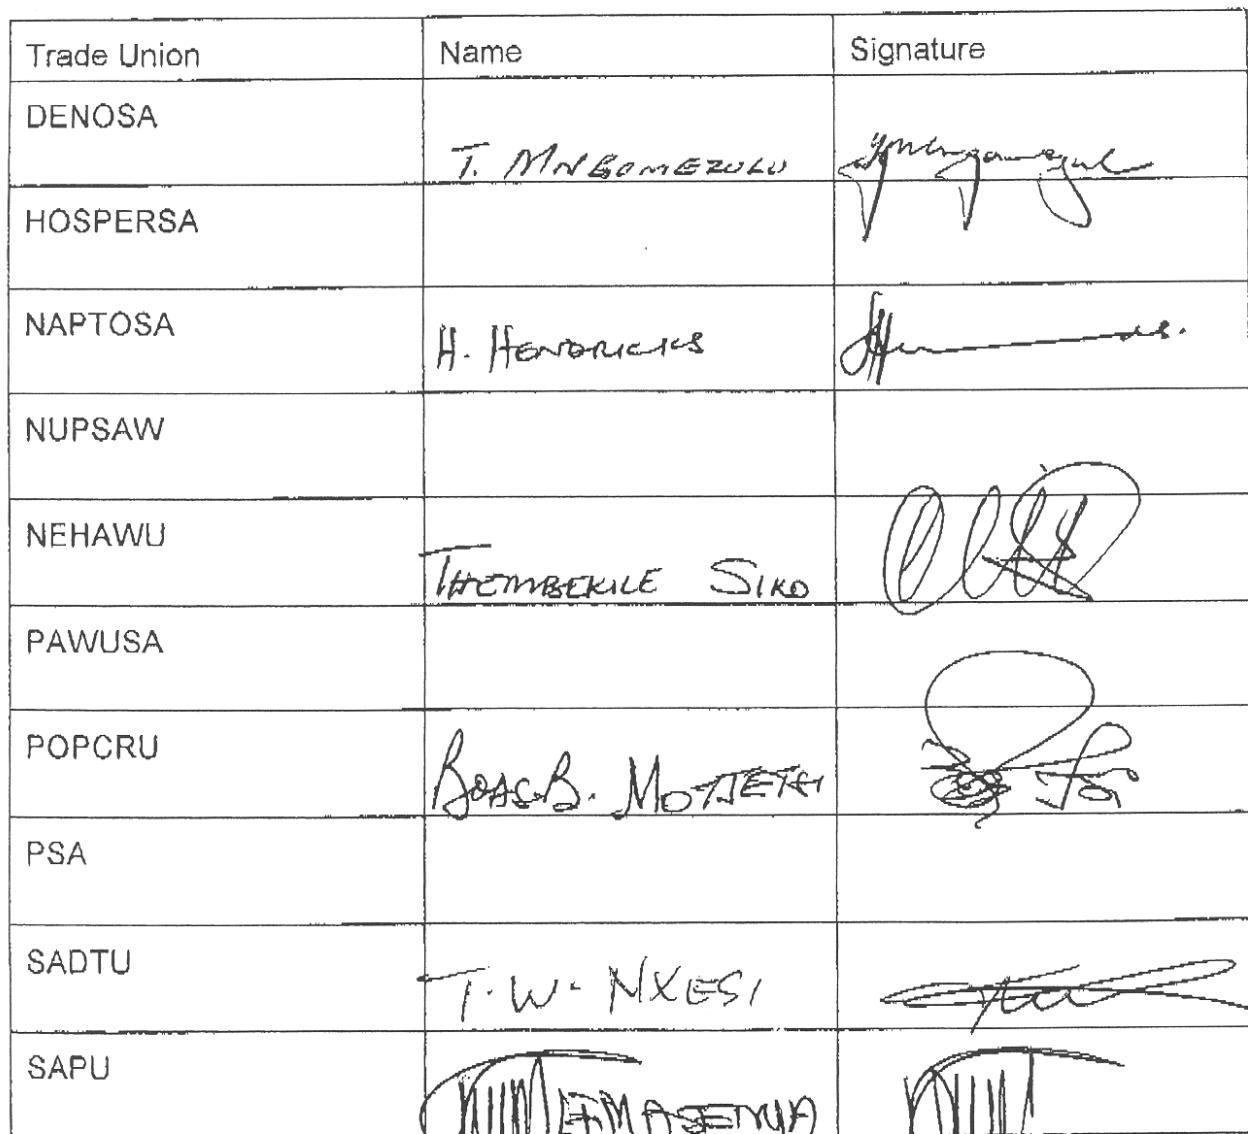 Trade Union Name Signature
DENOSA
T. MNGOMEZULU
HOSPERSA
NAPTOSA
H. HENDRICKS
NUPSAW
NEHAWU
THEMBEKILE SIKO
PAWUSA
POPCRU
BOAS B.
PSA
SADTU
T. W. NXESI
SAPU